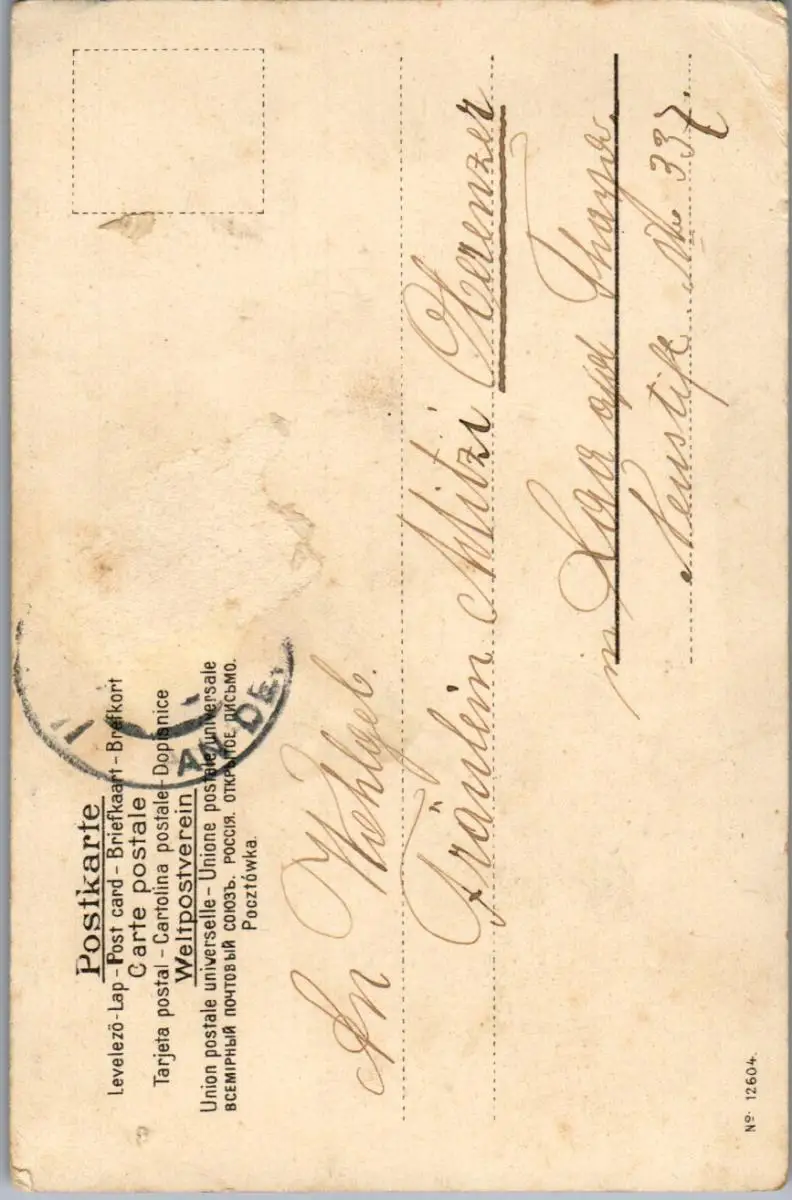 Postkarte
Levelező-Lap - Post card - Briefkaart - Brefkort
Carte postale
Tarjeta postal - Cartolina postale - Dopisnice
Weltpostverein
Union postale universelle - Unione postale universale
ВСЕМІРНЫЙ ПОЧТОВЫЙ СОЮЗЪ. РОССІЯ. ОТКРЫТОЕ ПИСЬМО.
Pocztówka.
AN DE
An Wohlgeb.
Fräulein Mitzi
in Laa a/d Thaya.
Neustift No 337.
No. 12604.